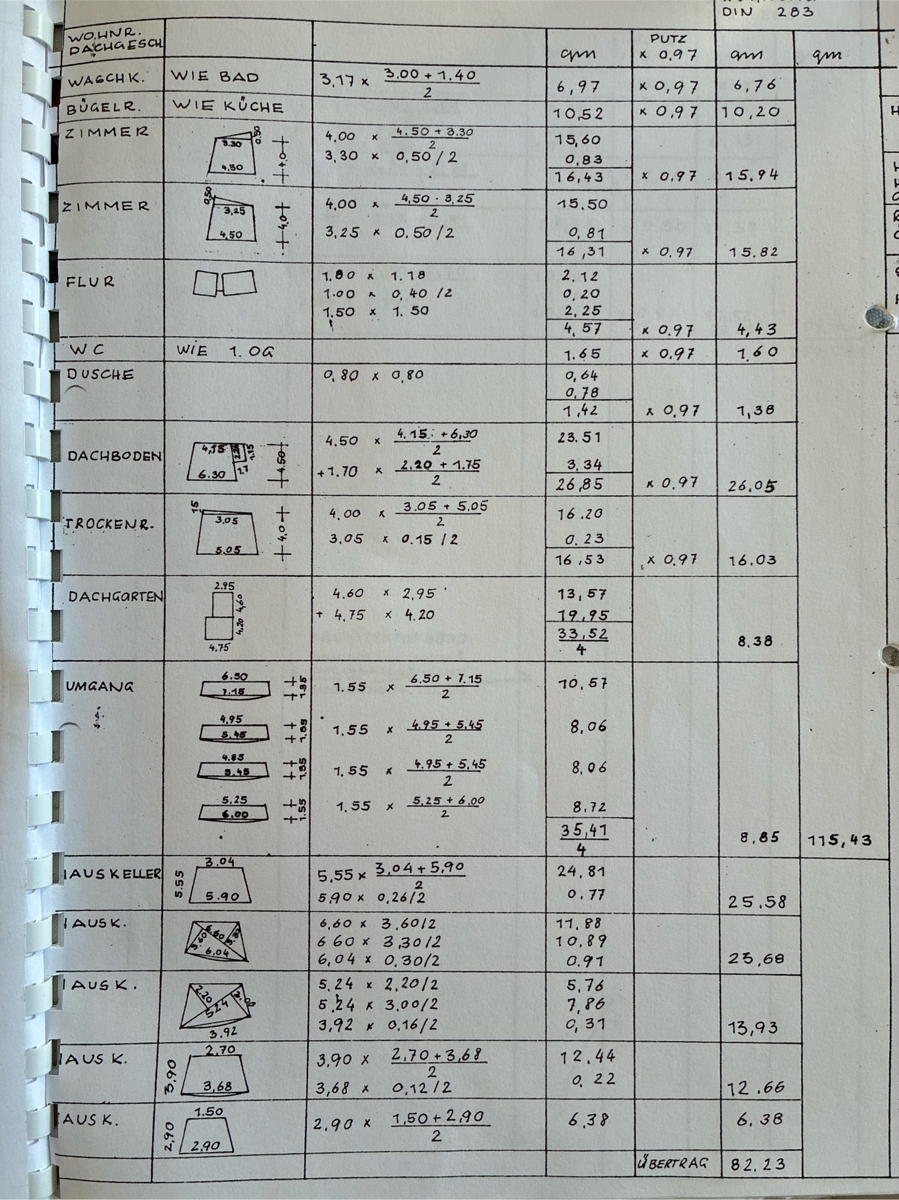 DIN 283
WOHNR.
DACHGESCH
qm
PUTZ
x 0.97
qm
qm
WASCHK. WIE BAD 3,17 x (3.00 + 1.40)/2 6,97 x 0,97 6,76
BÜGELR. WIE KÜCHE 10,52 x 0,97 10,20
ZIMMER 3.30 4,50 0,50 4,0 4,00 x (4.50 + 3.30)/2 15,60
3,30 x 0,50/2 0,83
16,43 x 0,97 15.94
ZIMMER 0,50 3,25 4,50 4,0 4,00 x (4,50 · 3,25)/2 15.50
3,25 x 0.50/2 0,81
16,31 x 0.97 15.82
FLUR 1.80 x 1.18 2.12
1.00 x 0,40 /2 0,20
1,50 x 1.50 2,25
4,57 x 0.97 4,43
WC WIE 1.OG 1.65 x 0,97 1,60
DUSCHE 0,80 x 0,80 0,64
0,78
1,42 x 0,97 1,38
DACHBODEN 4,15 6.30 1.7 4.50 4.50 x (4.15 + 6,30)/2 23.51
+1.70 x (2.20 + 1.75)/2 3.34
26,85 x 0.97 26.05
TROCKENR. 15 3,05 5.05 4,0 4.00 x (3.05 + 5.05)/2 16.20
3.05 x 0.15 /2 0.23
16,53 x 0.97 16.03
DACHGARTEN 2.95 4,60 4.20 4.75 4.60 x 2,95 13,57
+ 4,75 x 4.20 19,95
33,52/4 8.38
UMGANG 6.50 7.15 1.55 x (6.50 + 7.15)/2 10,57
4,95 5.45 1.55 x (4.95 + 5.45)/2 8,06
5.45 1.55 x (4.95 + 5,45)/2 8,06
5.25 6.00 1.55 1.55 x (5,25 + 6,00)/2 8.72
35,41/4 8,85 115,43
1 AUSKELLER 3.04 5.55 5.90 5,55 x (3,04 + 5,90)/2 24.81
5,90 x 0,26/2 0.77
25.58
1 AUSK. 3.60 6.60 6.04 6,60 x 3.60/2 11.88
6 60 x 3,30/2 10.89
6,04 x 0,30/2 0.91
23,68
1 AUSK. 2.20 5.24 3.92 5.24 x 2,20/2 5,76
5,24 x 3,00/2 7,86
3,92 x 0.16/2 0,31
13,93
1 AUSK. 2,70 3,90 3,68 3,90 x (2,70 + 3,68)/2 12.44
3,68 x 0,12/2 0.22
12.66
AUSK. 1.50 2,90 2,90 2,90 x (1,50 + 2,90)/2 6.38 6,38
ÜBERTRAG 82.23